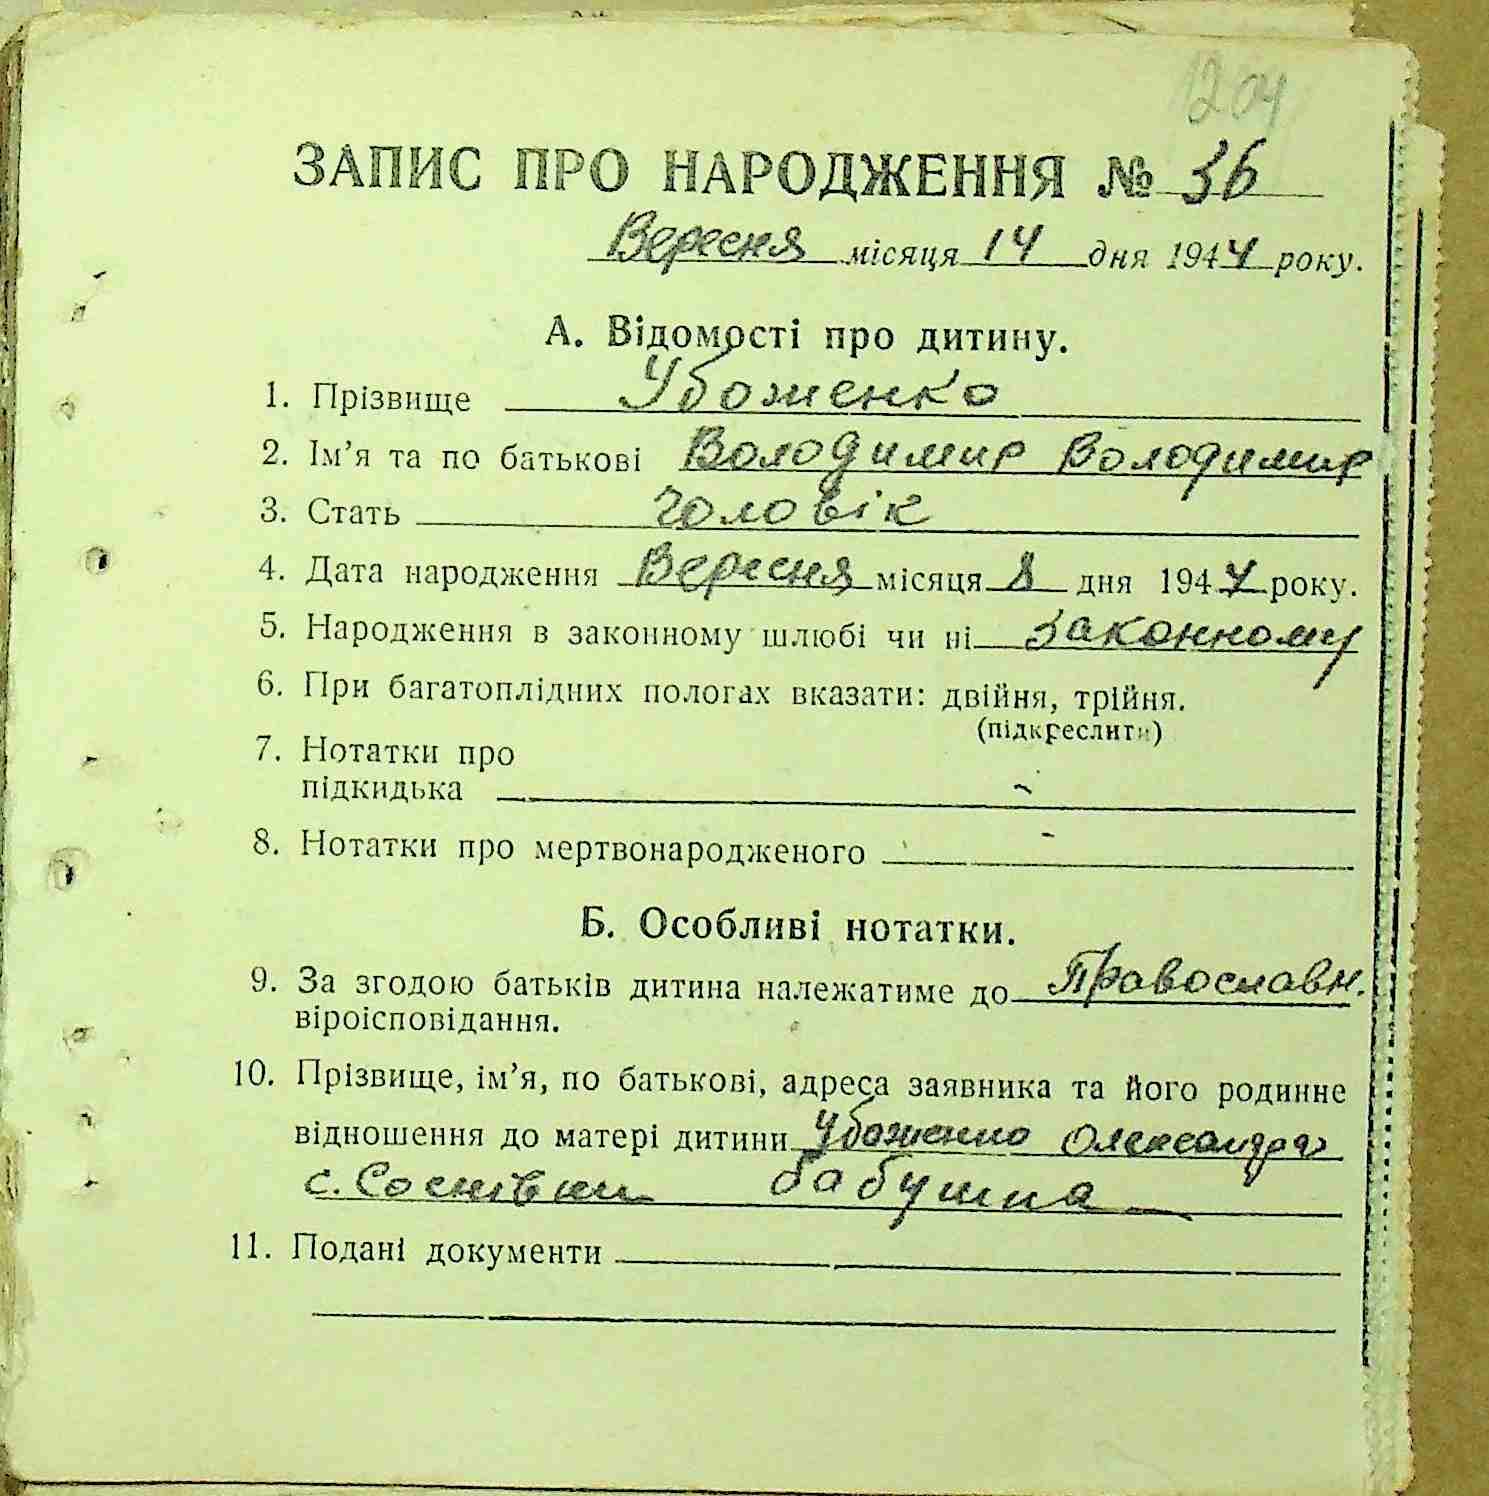 1204
ЗАПИС ПРО НАРОДЖЕННЯ № 36
Вересня місяця 14 дня 1944 року.
А. Відомості про дитину.
1. Прізвище Убоженко
2. Ім’я та по батькові Володимир Володимир
3. Стать чоловік
4. Дата народження Вересня місяця 8 дня 1944 року.
5. Народження в законному шлюбі чи ні законному
6. При багатоплідних пологах вказати: двійня, трійня.
(підкреслити)
7. Нотатки про
підкидька -
8. Нотатки про мертвонародженого -
Б. Особливі нотатки.
9. За згодою батьків дитина належатиме до Православн.
віроісповідання.
10. Прізвище, ім’я, по батькові, адреса заявника та його родинне
відношення до матері дитини Убоженко Олександра
с. Соснівки бабушка
11. Подані документи